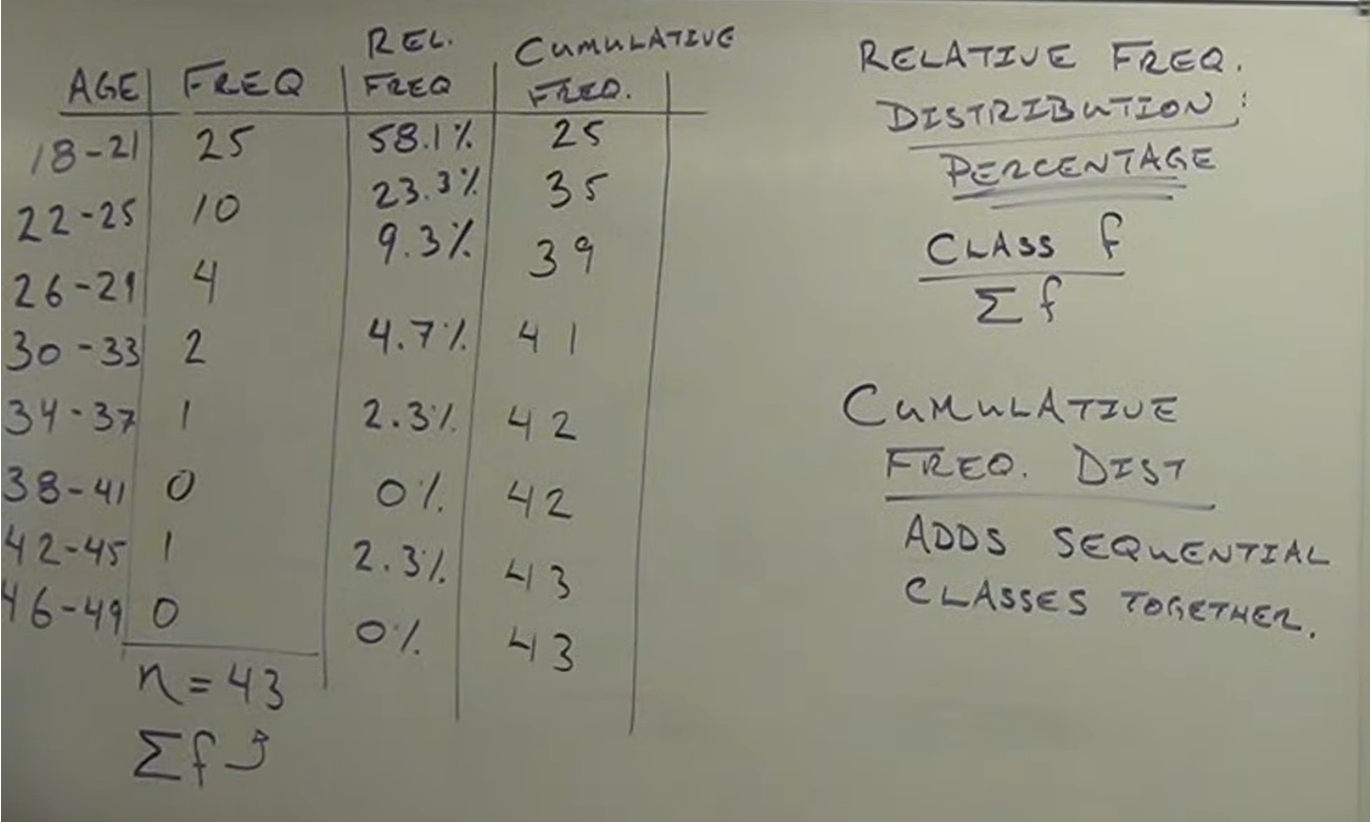 REL. CUMULATIVE
AGE FREQ FREQ FREQ.
18-21 25 58.1% 25
22-25 10 23.3% 35
26-29 4 9.3% 39
30-33 2 4.7% 41
34-37 1 2.3% 42
38-41 0 0% 42
42-45 1 2.3% 43
46-49 0 0% 43
n = 43
Σf
RELATIVE FREQ.
DISTRIBUTION:
PERCENTAGE
CLASS f
Σ f
CUMULATIVE
FREQ. DIST
ADDS SEQUENTIAL
CLASSES TOGETHER.